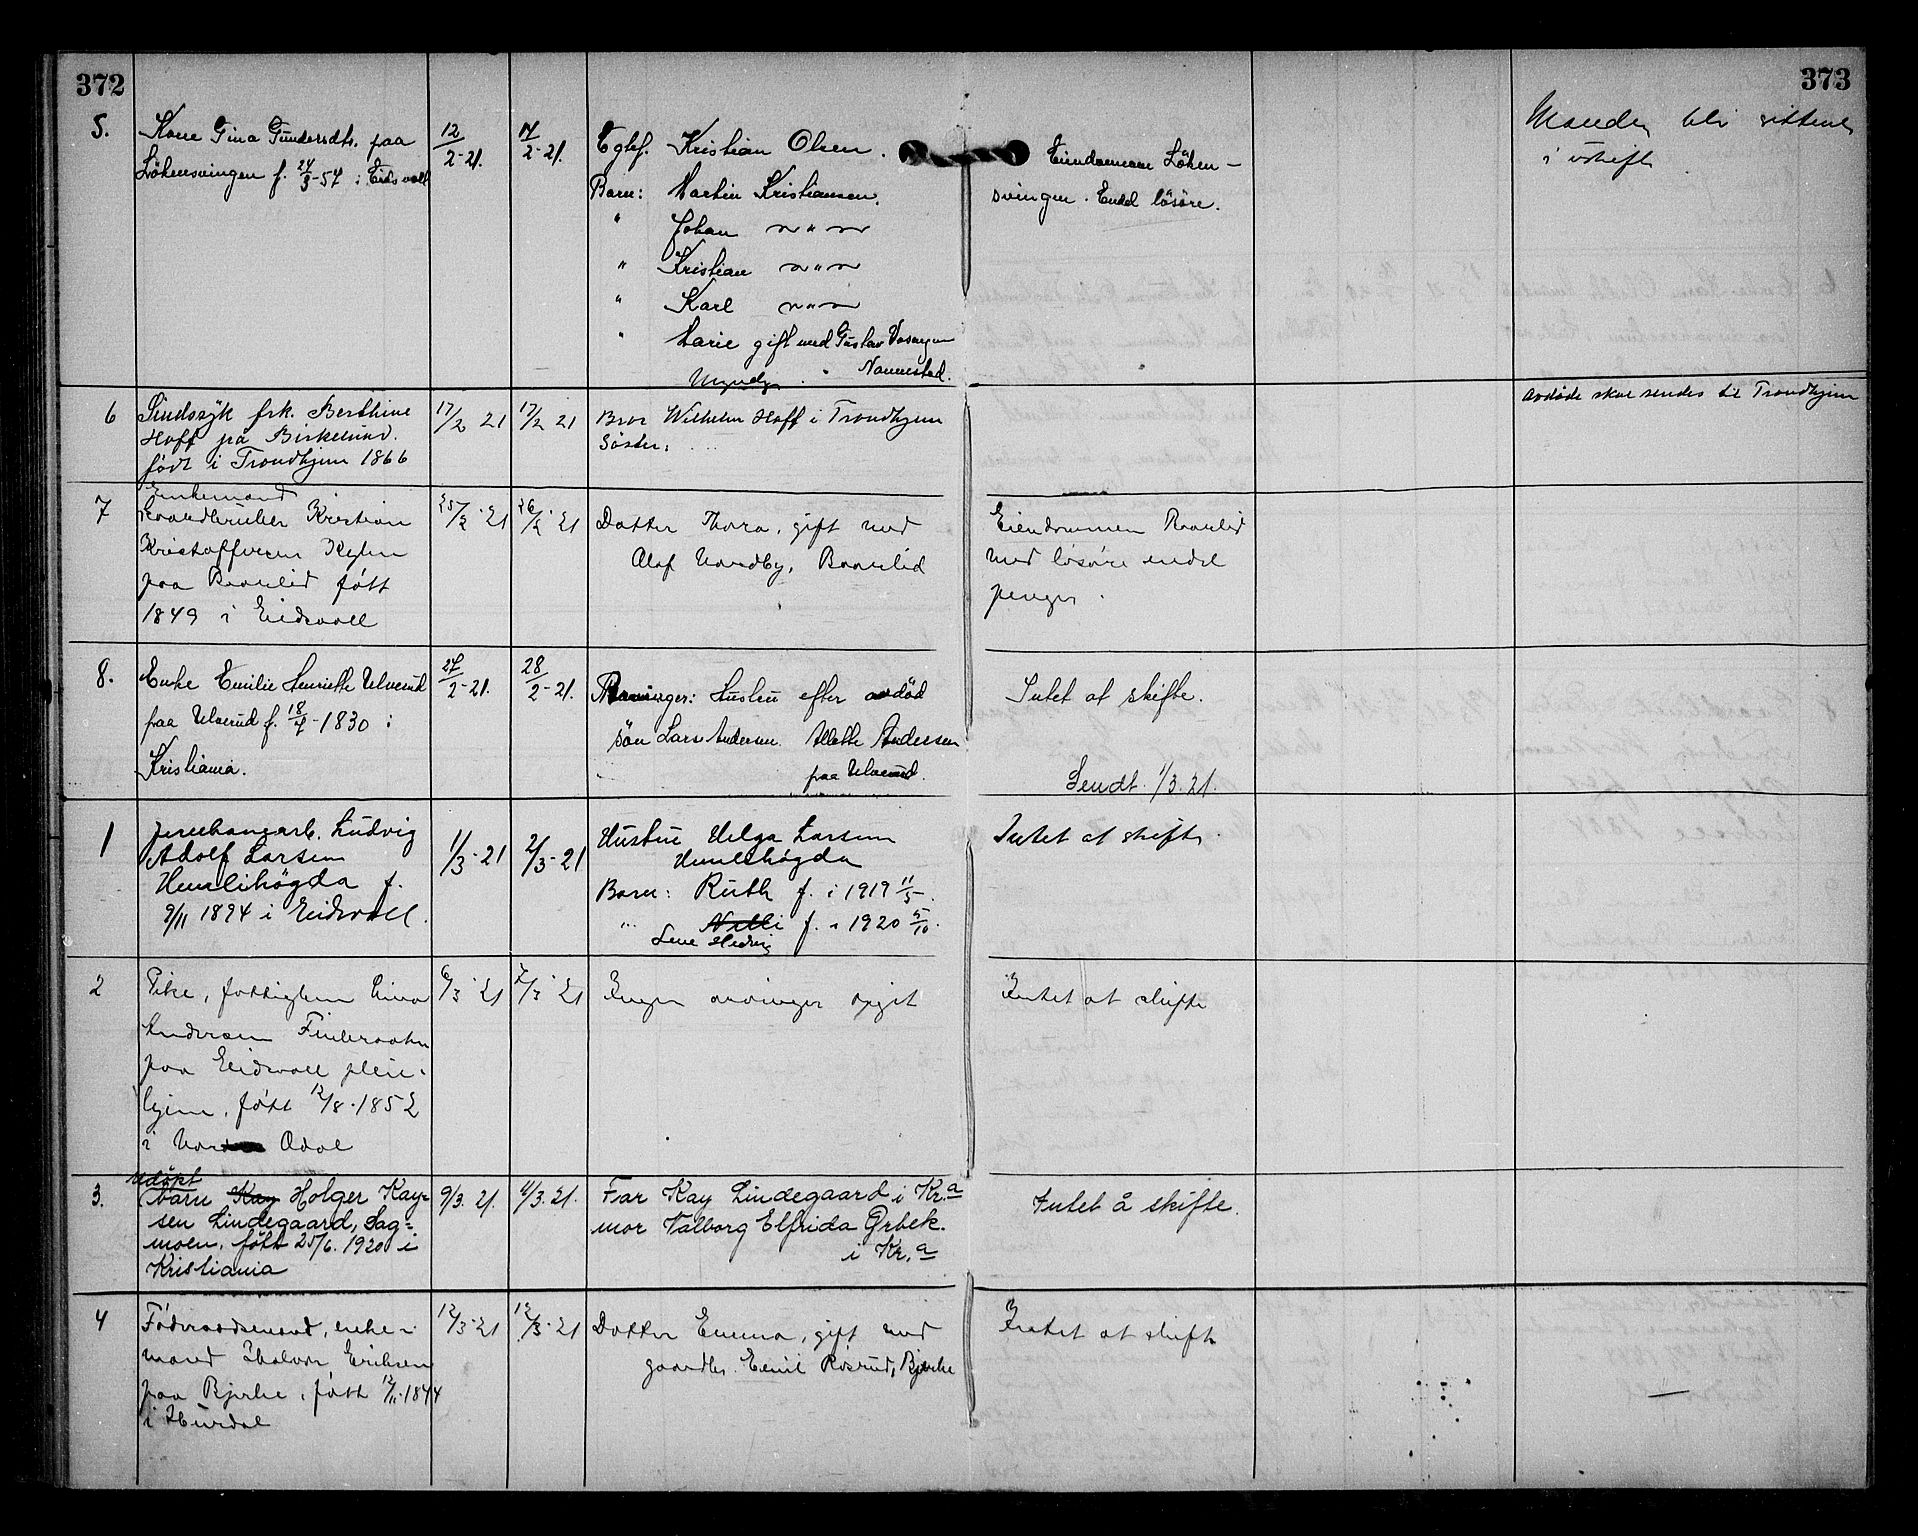 372
373
5.
Kone Gina Gundersdtr. paa
Lökensvingen f. 24/3-54 i Eidsvoll
12/2-21.
14/2-21.
Egtef. Kristian Olsen.
Barn: Martin Kristiansen.
" Johan —"—
" Kristian —"—
" Karl —"—
" Marie gift med Gustav
Nannestad.
Myndige.
Eiendommen Löken-
svingen. Endel lösöre.
Manden blir sittende
i uskifte
6
Sindssyk frk. Berthine
Hoff på Birkelund.
født i Trondhjem 1866
17/2 21
17/2 21
Bror Wilhelm Hoff i Trondhjem
Søster:
Avdøde skal sendes til Trondhjem
7
Enkemand
Gaardbruker Kristian
Kristoffersen
paa Raanlid født
1849 i Eidsvoll
25/2-21
26/2-21
Datter Thora, gift med
Olaf Nordby, Raanlid
Eiendommen Raanlid
med løsøre endel
penger.
8.
Enke Emilie Henriette Ulverud
paa Ulverud f. 18/4-1830 i
Kristiania.
27/2-21.
28/2-21.
Arvinger: Hustru efter avdød
sön Lars Andersen. Alette Andersen
paa Ulverud.
Intet at skifte.
Sendt 1/3.21.
1
Jernbanearb. Ludvig
Adolf Larsen
Humlehøgda f.
9/11 1894 i Eidsvoll.
1/3-21
2/3-21
Hustru Helga Larsen
Humlehøgda
Barn: Ruth f. i 1919 11/5.
" Nelli f. i 1920 5/10.
Lene Hedvig
Intet at skifte.
2
Pike, fattiglem Lina
Andersen
paa Eidsvoll pleie-
hjem, født 12/8-1852
i Nord Odal
6/3-21
7/3-21
Ingen arvinger opgit
Intet at skifte
3.
Udöpt
barn Kay Holger Kay=
sen Lindegaard, Sag=
moen, født 25/6. 1920 i
Kristiania
9/3.21.
11/3.21.
Far Kay Lindegaard i Kr.a
mor Valborg Elfrida Ørbek.
i Kr.a
Intet å skifte.
4
Föderaadsmand, enke-
mand Halvor Eriksen
paa Bjerke, født 12/11-1844
i Hurdal
12/3-21
12/3-21
Datter Emma, gift med
gaardbr. Emil Røsrud, Bjerke
Intet at skifte
—